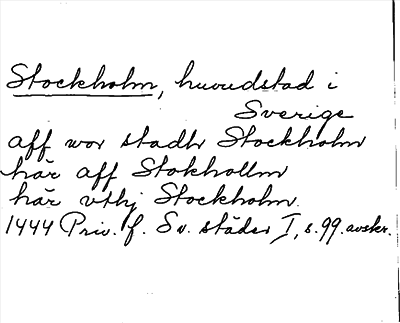 Stockholm, huvudstad i
Sverige
aff wor stadh Stockholm
här aff Stokhollm
här vthj Stockholm.
1444 Priv. f. Sv. städer I, s. 99. avskr.